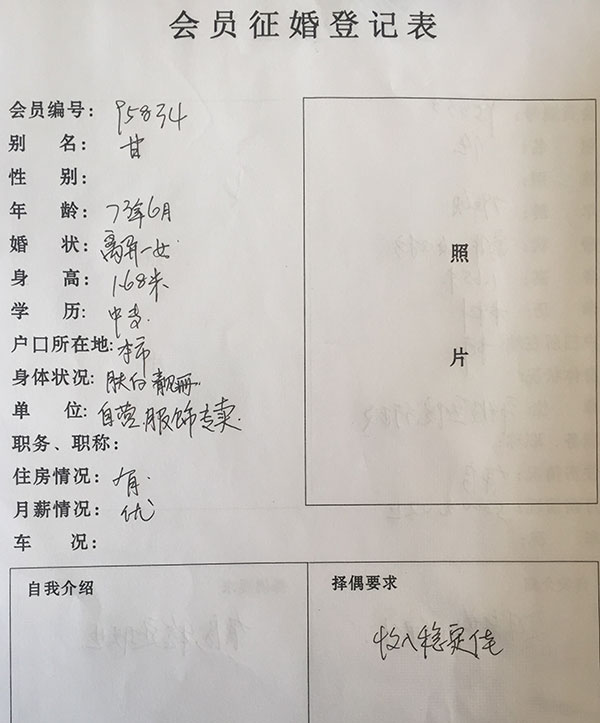 会员征婚登记表
会员编号: 95834
别 名: 甘
性 别:
年 龄: 73年6月
婚 状: 离异一女
身 高: 1.68米
学 历: 中专
户口所在地: 本市
身体状况: 肤白靓丽
单 位: 自营服饰专卖
职务、职称:
住房情况: 有
月薪情况: 优
车 况:
照
片
自我介绍
择偶要求
收入稳定佳